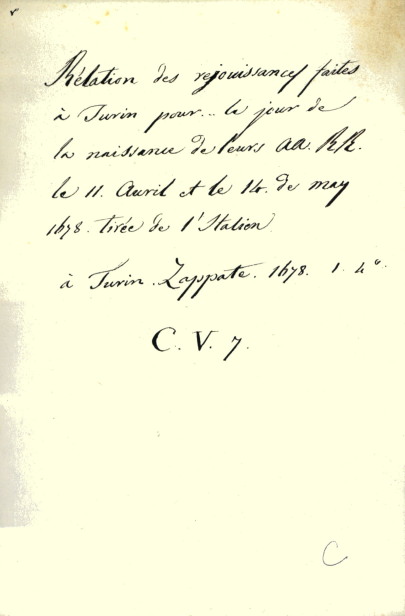 Rélation des rejouissances faites
à Turin pour... le jour de
la naissance de leurs AA. RR.
le 11. Avril et le 14. de may
1678. tirée de l'Italien
à Turin. Zappate. 1678. 1. 4°.
C. V. 7.
C